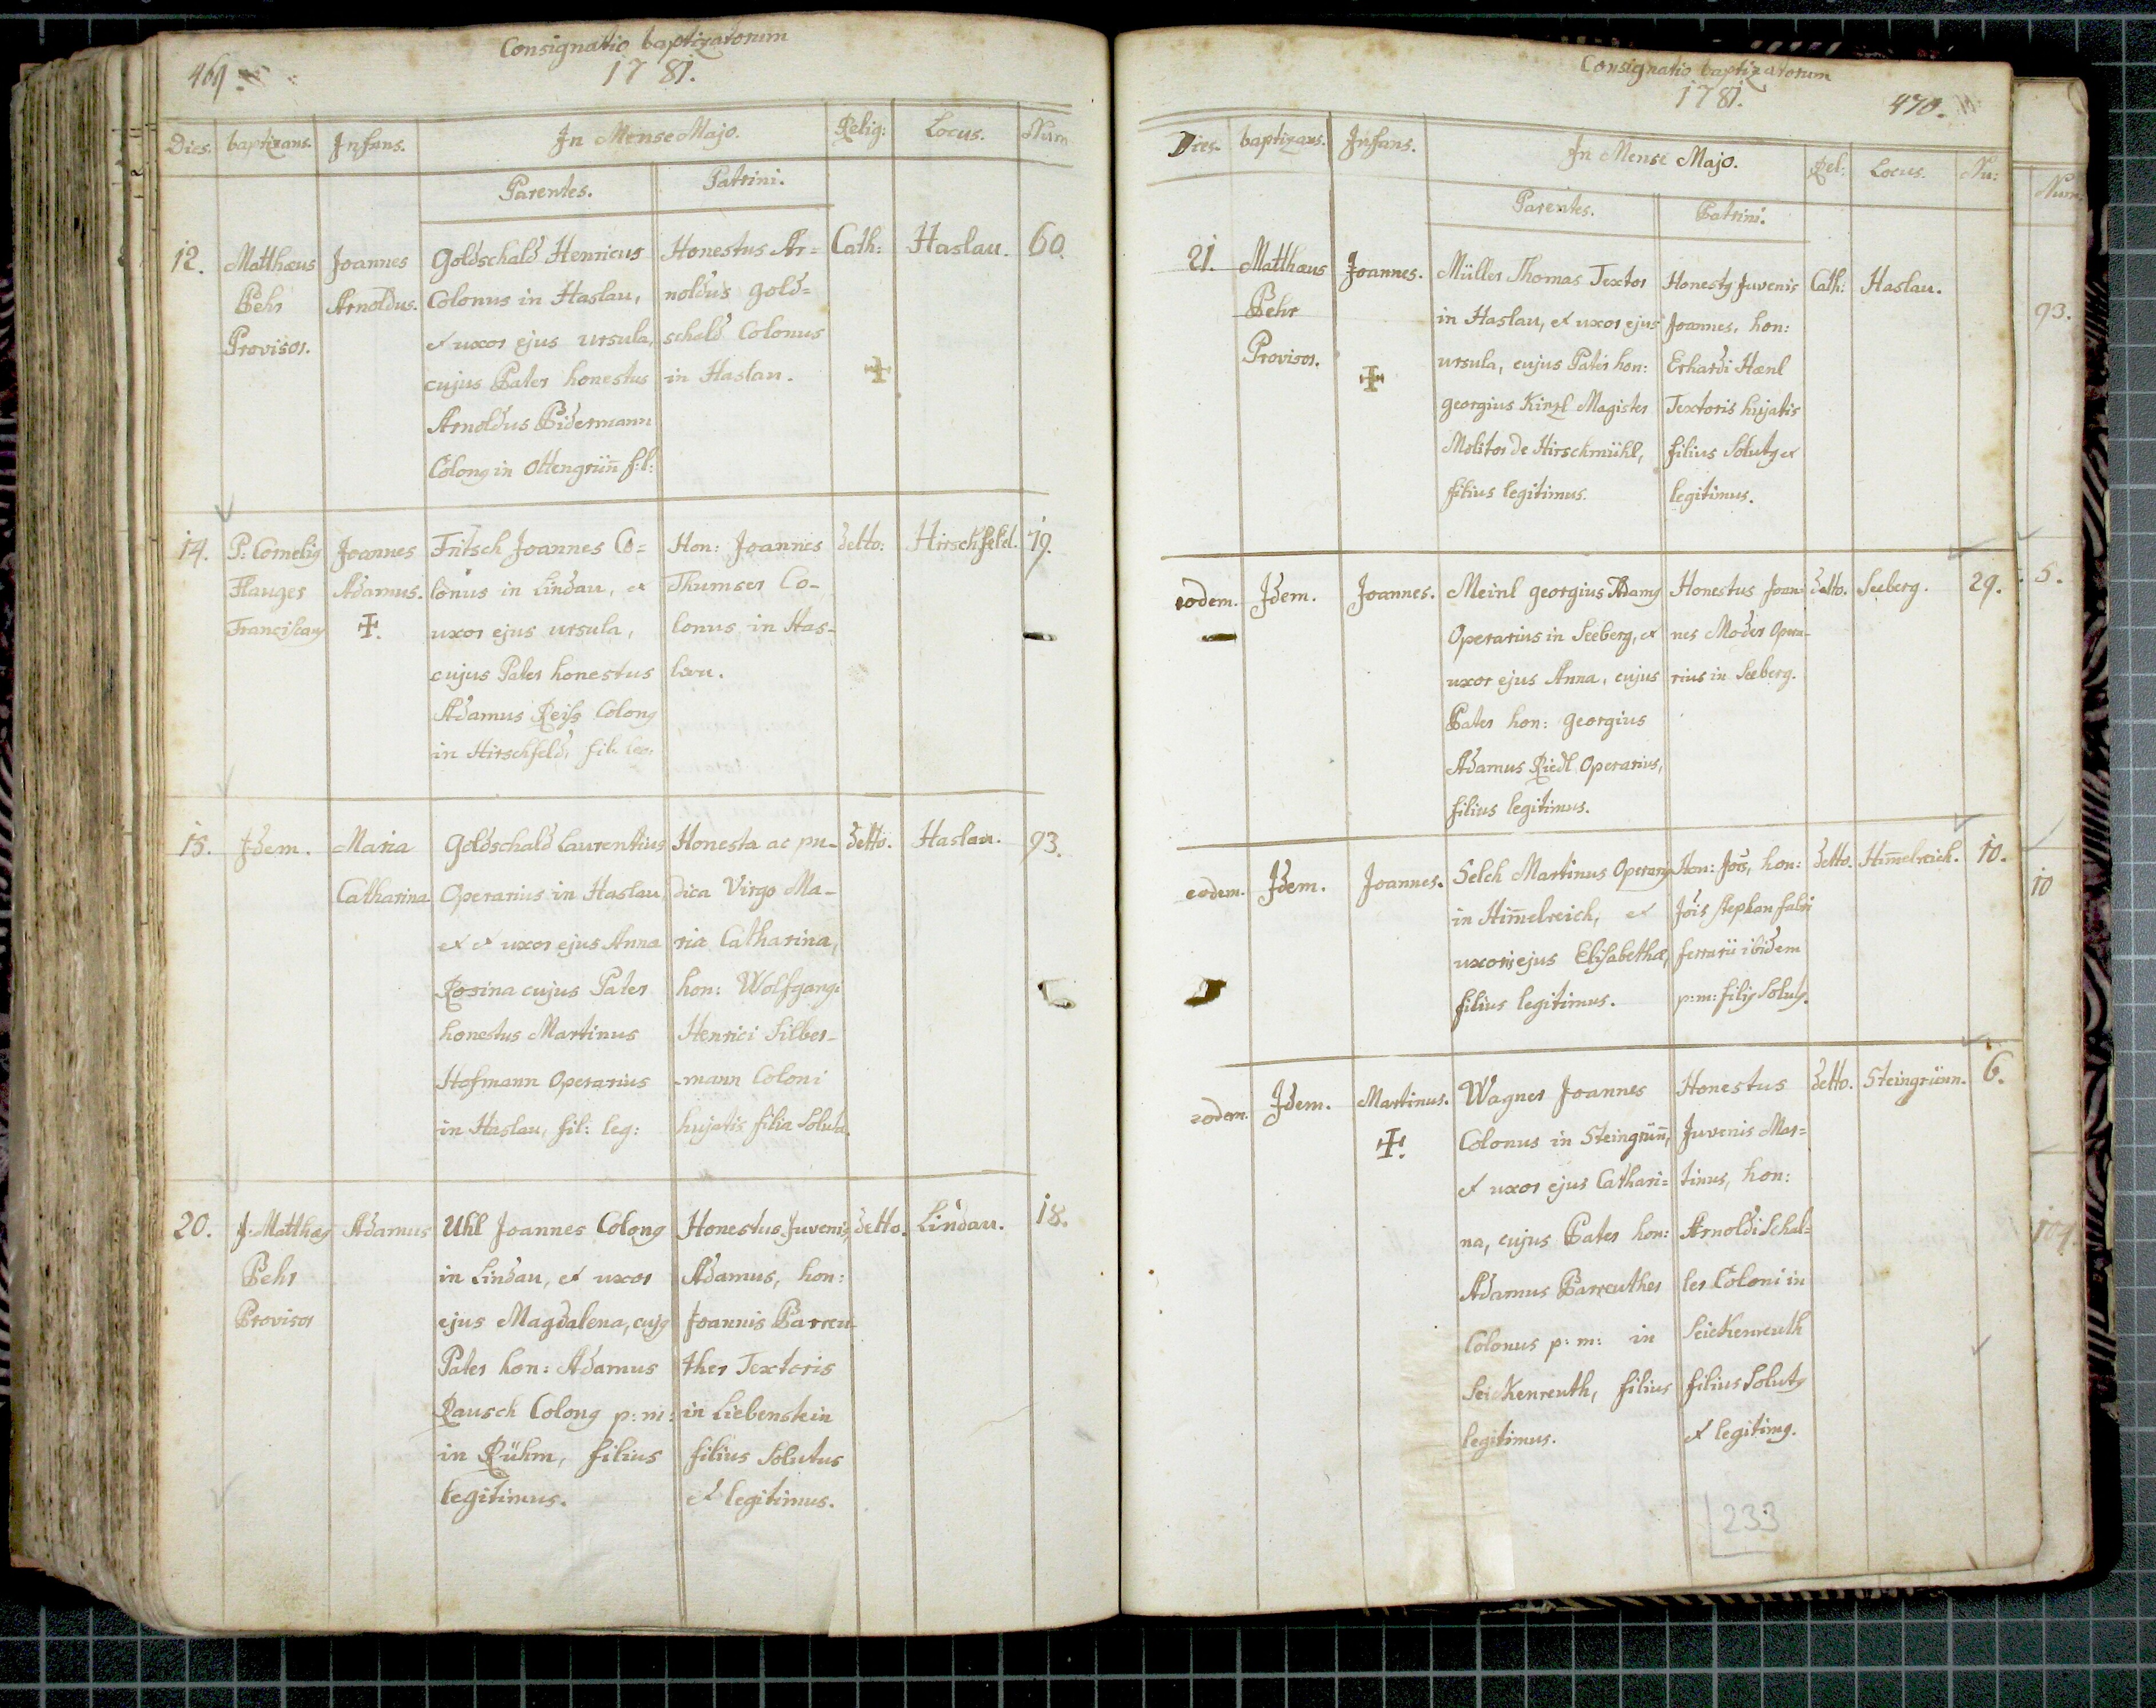 469.
Consignatio baptizatorum
1781.
Dies. baptizans. Infans. In Mense Majo. Relig: Locus. Num
Parentes. Patrini.
12. Matthæus Joannes Goldschald Henricus Honestus Ar= Cath: Haslau. 60.
Pehr Arnoldus. Colonus in Haslau, noldus Gold=
Provisor. et uxor ejus ursula, schald Colonus
cujus Pater honestus in Haslau.
Arnoldus Pidermann
Colonꝰ in Ottengrün̄ f:l:
14. P: Corneliꝰ Joannes Fritsch Joannes Co= Hon: Joannes detto: Hirschfeld. 19.
Flauger Adamus. lonus in Lindau, et Thumser Co-
Franciscanꝰ uxor ejus ursula, lonus in Has-
cujus Pater honestus lau.
Adamus Reiß Colonꝰ
in Hirschfeld, fil: leg:
15. Idem. Maria Goldschald Laurentius Honesta ac pu- detto. Haslau. 93.
Catharina Operarius in Haslau, dica Virgo Ma-
et et uxor ejus Anna ria Catharina,
Rosina cujus Pater hon: Wolfgangi
honestus Martinus Henrici Silber-
Hofmann Operarius -mann Coloni
in Haslau, fil: leg: hujatis filia Soluta.
20. J: Matthæꝰ Adamus Uhl Joannes Colonꝰ Honestus Juvenis, detto. Lindau. 18.
Pehr in Lindau, et uxor Adamus, hon:
Provisor ejus Magdalena, cujꝰ Joannis Parreu-
Pater hon: Adamus ther Textoris
Rausch Colonꝰ p: m: in Liebenstein
in Rühm, filius filius Solutus
legitimus. et legitimus.
Consignatio baptizatorum
1781.
470.
Dies. baptizans. Infans. In Mense Majo. Rel: Locus. Nu:
Parentes. Patrini.
21. Matthæus Joannes. Müller Thomas Textor Honestꝰ Juvenis Cath: Haslau.
Pehr in Haslau, et uxor ejus Joannes, hon:
Provisor. ursula, cujus Pater hon: Erhardi Hænl
georgius Kinzl Magister Textoris hujatis
Molitor de Hirschmühl, filius Solutꝰ et
filius legitimus. legitimus.
eodem. Idem. Joannes. Meinl georgius Adamꝰ Honestus Joan- detto. Seeberg. 29.
Operarius in Seeberg, et nes Moder Opera-
uxor ejus Anna, cujus rius in Seeberg.
Pater hon: georgius
Adamus Riedl Operarius,
filius legitimus.
eodem. Idem. Joannes. Selch Martinus Operariꝰ Hon: Jōis, hon: detto. Him̄elreich. 10.
in Him̄elreich, et Jōis Stephan fabri
uxoris ejus Elisabethæ, ferrarii ibidem
filius legitimus. p: m: filiꝰ Solutꝰ.
eodem. Idem. Martinus. Wagner Joannes Honestus detto. Steingrünn. 6.
Colonus in Steingrün̄, Juvenis Mar=
et uxor ejus Cathari= tinus, hon:
na, cujus Pater hon: Arnoldi Schal=
Adamus Parreuther ler Coloni in
Colonus p: m: in Seickenreuth
Seickenreuth, filius filius Solutꝰ
legitimus. et legitimꝰ.
233
Num:
93.
5.
10
104.